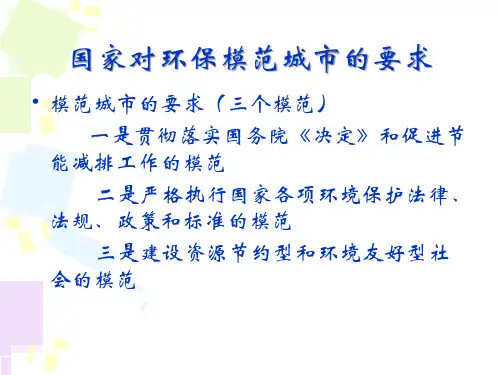 国家对环保模范城市的要求
• 模范城市的要求（三个模范）
一是贯彻落实国务院《决定》和促进节
能减排工作的模范
二是严格执行国家各项环境保护法律、
法规、政策和标准的模范
三是建设资源节约型和环境友好型社
会的模范